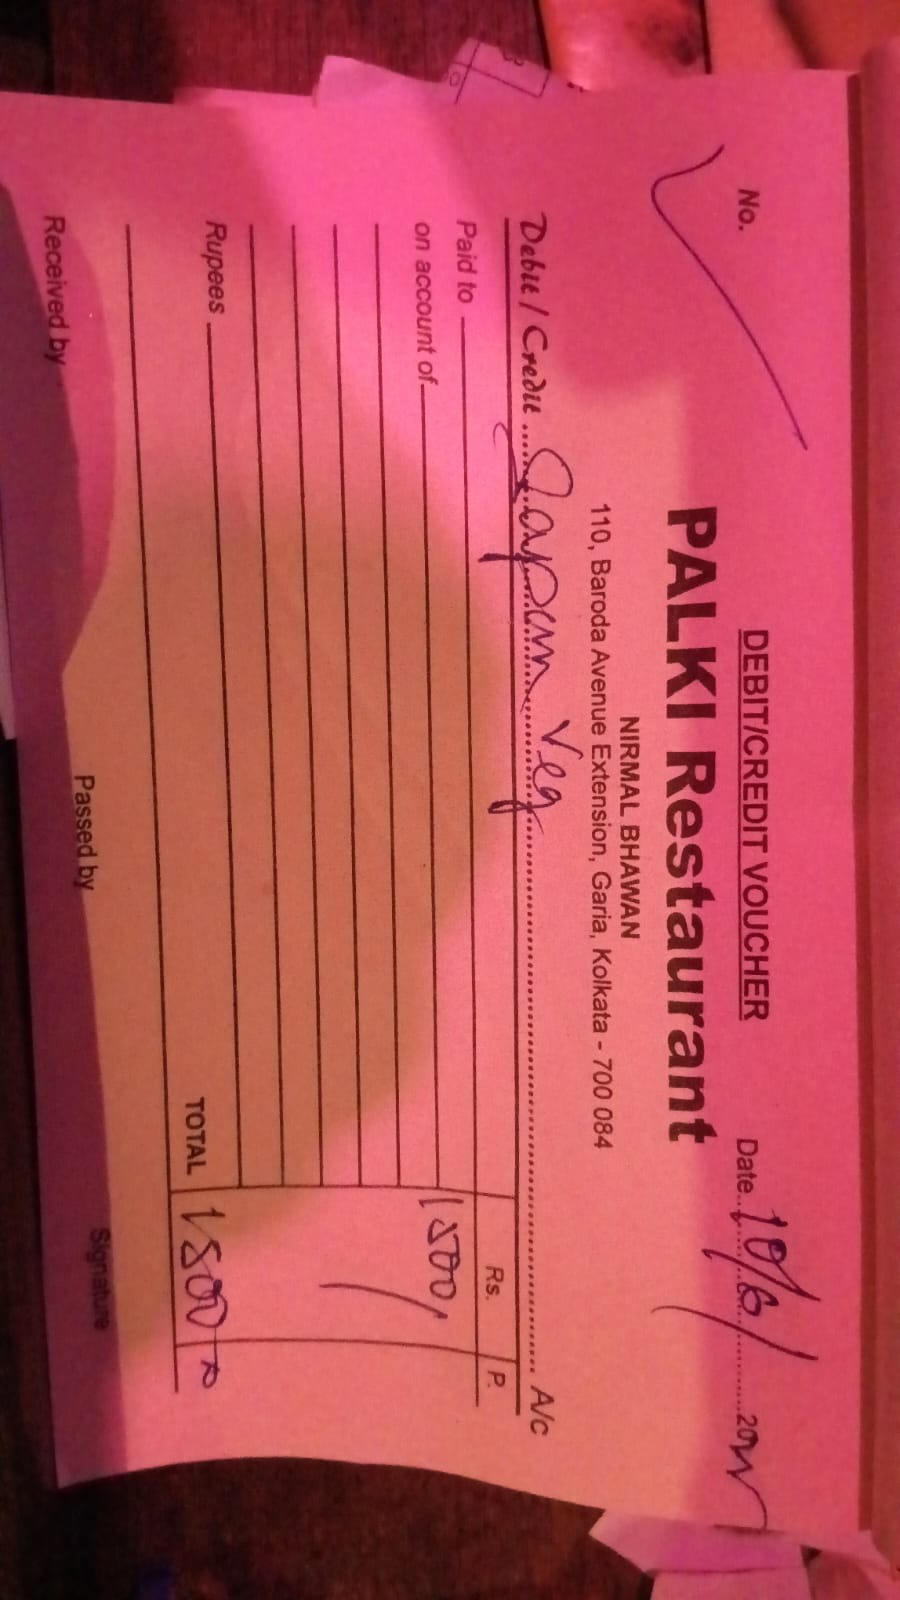 DEBIT/CREDIT VOUCHER
No. Date 10/6/ 20
PALKI Restaurant
NIRMAL BHAWAN
110, Baroda Avenue Extension, Garia, Kolkata - 700 084
Debit / Credit Veg A/c
Paid to Rs. P.
on account of 1500/
Rupees TOTAL 1500
Received by Passed by Signature